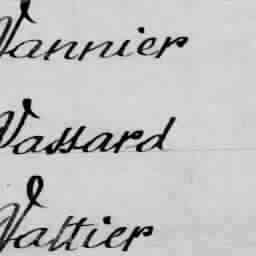 Vannier
Vassard
Vattier